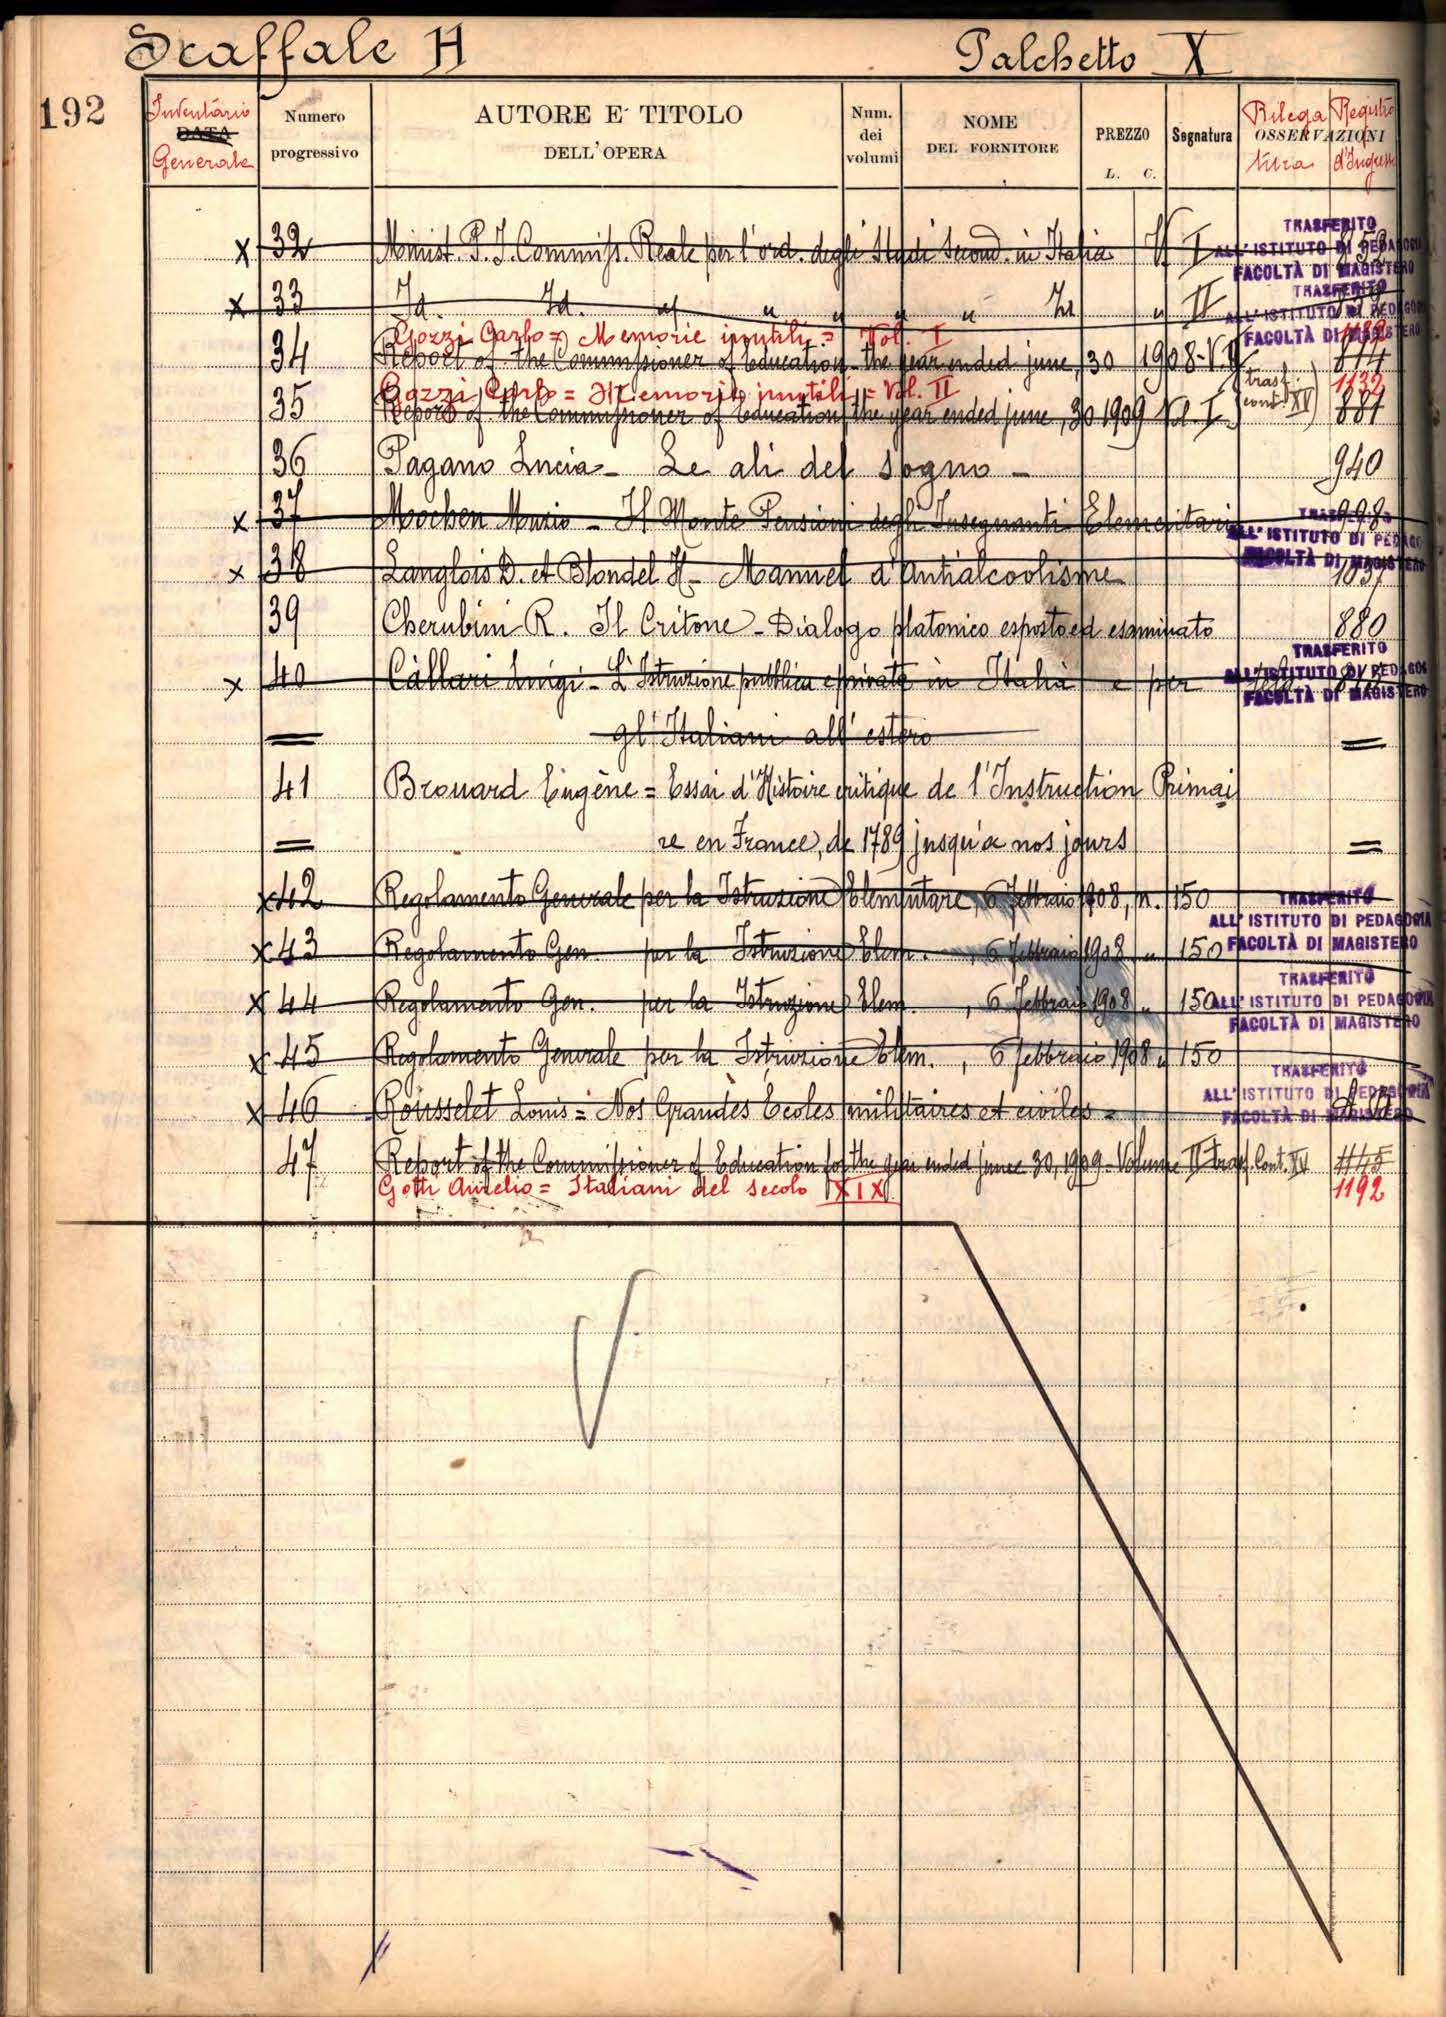 Scaffale H Palchetto X
192
Inventario DATA Generale
Numero progressivo
AUTORE E TITOLO DELL'OPERA
Num. dei volumi
NOME DEL FORNITORE
PREZZO L. C.
Segnatura
Rilegatura
OSSERVAZIONI
Registro d'Ingresso
TRASFERITO
x 32 Minist. P. I. Commiss. Reale per l'ord. degli Studi Second. in Italia V. I
ALL'ISTITUTO DI PEDAGOGIA
FACOLTÀ DI MAGISTERO
TRASFERITO
x 33 Id. Id. " " " " " Id " II
ALL'ISTITUTO DI PEDAGOGIA
FACOLTÀ DI MAGISTERO
Gozzi Carlo = Memorie inutili = Vol. I 1132
34 Report of the Commissioner of Education the year ended june, 30 1908-V. 814
Gozzi Carlo = Memorie inutili = Vol. II 1132
35 Report of the Commissioner of Education the year ended june, 30 1909 Vol. I. (trasf. cont. XV) 881
36 Pagano Lucia - Le ali del sogno - 940
x 37 Mochen Muzio - Il Monte Pensioni degli Insegnanti Elementari 998
TRASFERITO
ALL'ISTITUTO DI PEDAGO
FACOLTÀ DI MAGISTERO
x 38 Langlois D. et Blondel H. - Manuel d'Antialcoolisme 1037
39 Cherubini R. Il Critone - Dialogo platonico esposto ed esaminato 880
TRASFERITO
x 40 Càllari Luigi - L'Istruzione pubblica e privata in Italia e per
ALL'ISTITUTO DI PEDAGOG
FACOLTÀ DI MAGISTERO
= gl'Italiani all'estero =
41 Brouard Eugène = Essai d'Histoire critique de l'Instruction Primai
= re en France, de 1789 jusqu'a nos jours =
x 42 Regolamento Generale per la Istruzione Elementare, 6 febbraio 1908, n. 150
TRASFERITO
ALL'ISTITUTO DI PEDAGOGIA
FACOLTÀ DI MAGISTERO
x 43 Regolamento Gen. per la Istruzione Elem. , 6 febbraio 1908 " 150
TRASFERITO
x 44 Regolamento Gen. per la Istruzione Elem. , 6 febbraio 1908 " 150
ALL'ISTITUTO DI PEDAGOGIA
FACOLTÀ DI MAGISTERO
x 45 Regolamento Generale per la Istruzione Elem. , 6 febbraio 1908 " 150
TRASFERITO
ALL'ISTITUTO DI PEDAGOGIA
x 46 Rousselet Louis = Nos Grandes Ecoles militaires et civiles =
FACOLTÀ DI MAGISTERO
47 Report of the Commissioner of Education for the year ended junee 30, 1909 - Volume II trasf. Cont. XV 1145
Gotti Aurelio = Italiani del secolo XIX 1192